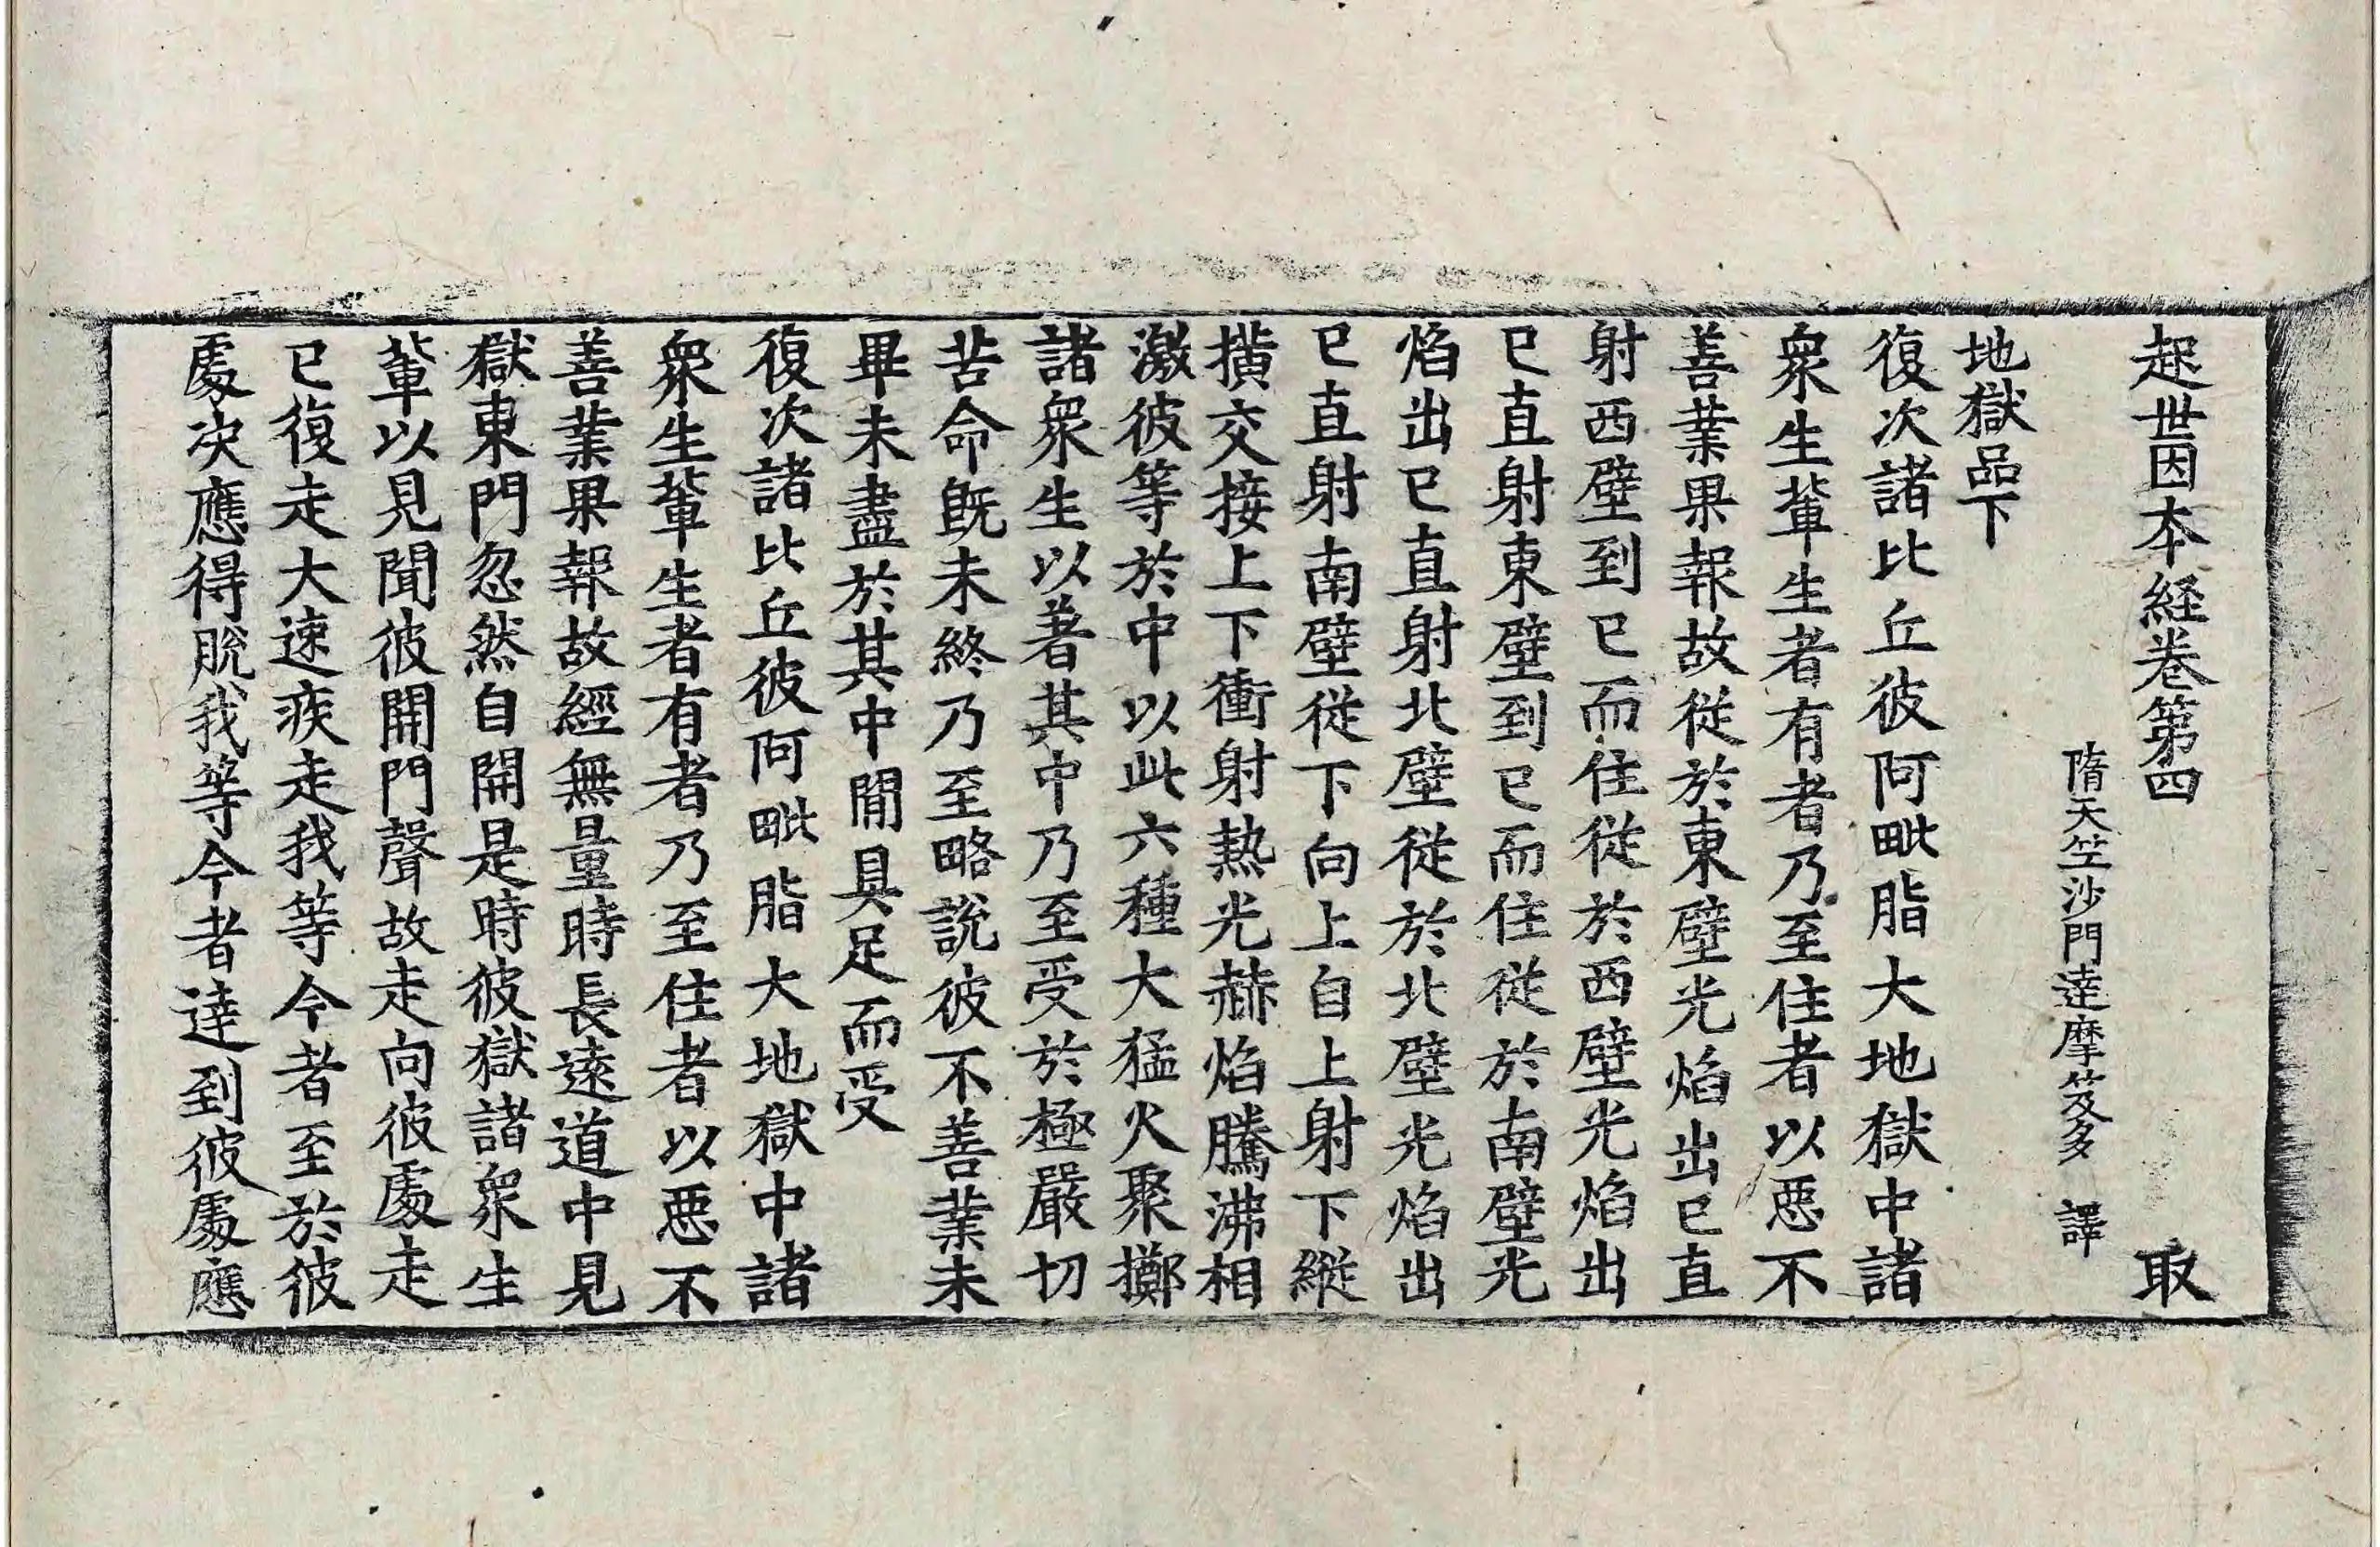 起世因本経卷第四 取
隋天竺沙門達摩笈多 譯
地獄品下
復次諸比丘彼阿毗脂大地獄中諸
衆生輩生者有者乃至住者以惡不
善業果報故從於東壁光焰出已直
射西壁到已而住從於西壁光焰出
已直射東壁到已而住從於南壁光
焰出已直射北壁從於北壁光焰出
已直射南壁從下向上自上射下縱
橫交接上下衝射熱光赫焰騰沸相
激彼等於中以此六種大猛火聚擲
諸衆生以著其中乃至受於極嚴切
苦命旣未終乃至略說彼不善業未
畢未盡於其中間具足而受
復次諸比丘彼阿毗脂大地獄中諸
衆生輩生者有者乃至住者以惡不
善業果報故經無量時長遠道中見
獄東門忽然自開是時彼獄諸衆生
輩以見聞彼開門聲故走向彼處走
已復走大速疾走我等今者至於彼
處决應得脫我等今者達到彼處應